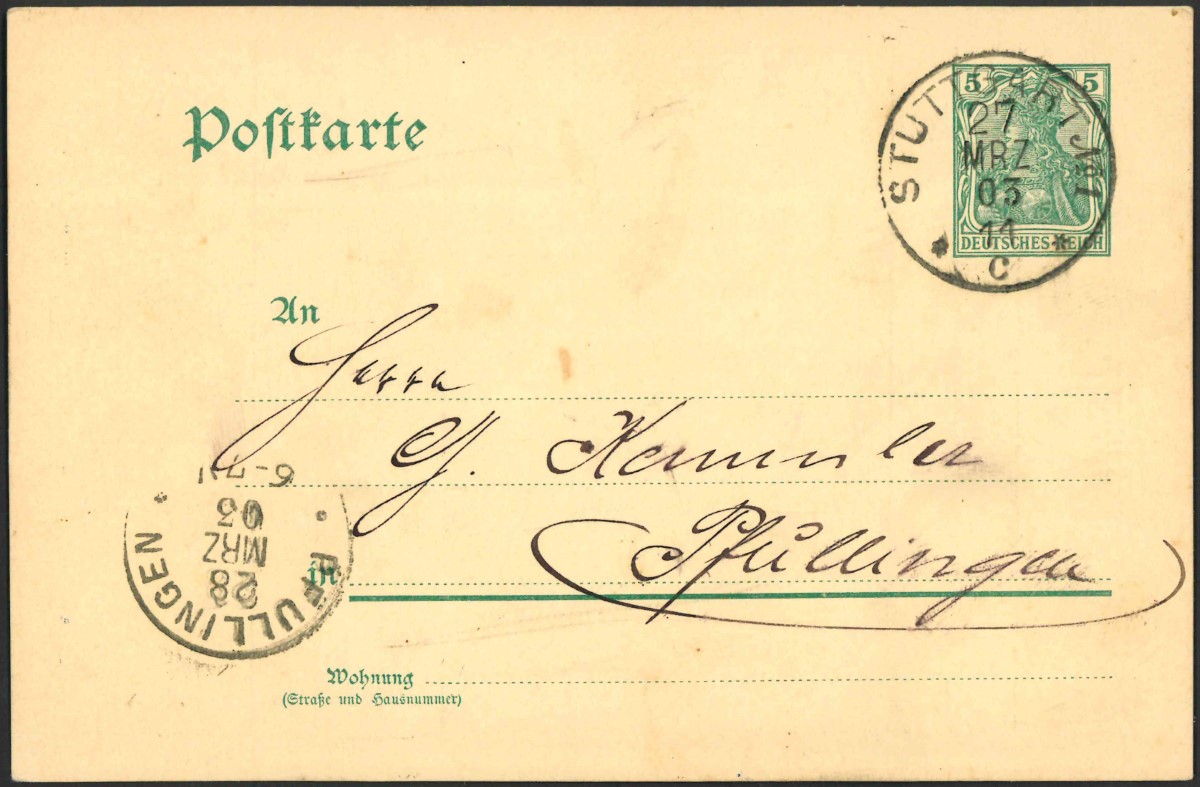 Postkarte
5 5
DEUTSCHES REICH
STUTTGART No 1
27
MRZ
03
11
C
An
Herrn
G. Kemmler
Pfullingen
in
PFULLINGEN
28
MRZ
03
6-7N
Wohnung
(Straße und Hausnummer)